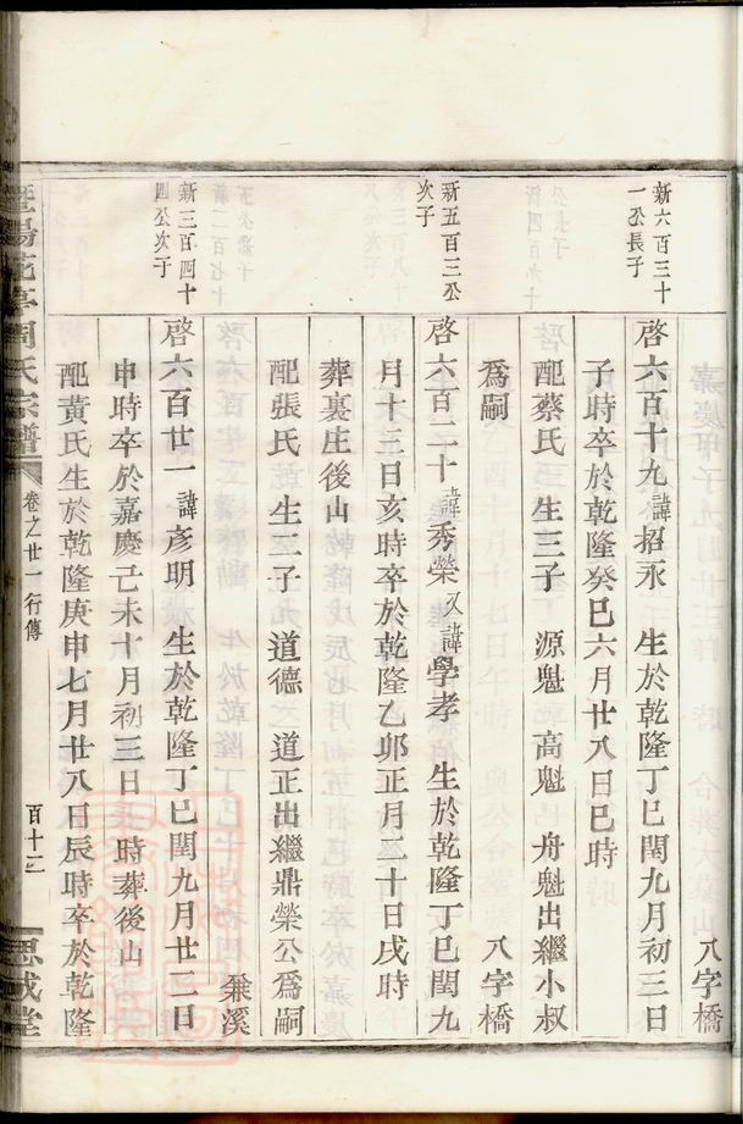 八字橋
新六百三十
一公長子
啓六百十九諱招永　生於乾隆丁巳閏九月初三日
子時卒於乾隆癸巳六月廿八日巳時
配蔡氏　生三子　源魁　高魁　舟魁出繼小叔
爲嗣　八字橋
新五百三公
次子
啓六百二十諱秀榮又諱學孝　生於乾隆丁巳閏九
月十三日亥時卒於乾隆乙卯正月二十日戌時
葬裏庄後山
配張氏　生二子　道德　道正出繼鼎榮公爲嗣
乗溪
新三百四十
四公次子
啓六百廿一諱彥明　生於乾隆丁巳閏九月廿二日
申時卒於嘉慶己未十月初三日　時葬後山
配黃氏生於乾隆庚申七月廿八日辰時卒於乾隆
暨陽花亭周氏宗譜
卷之廿一行傳
百十二
思成堂